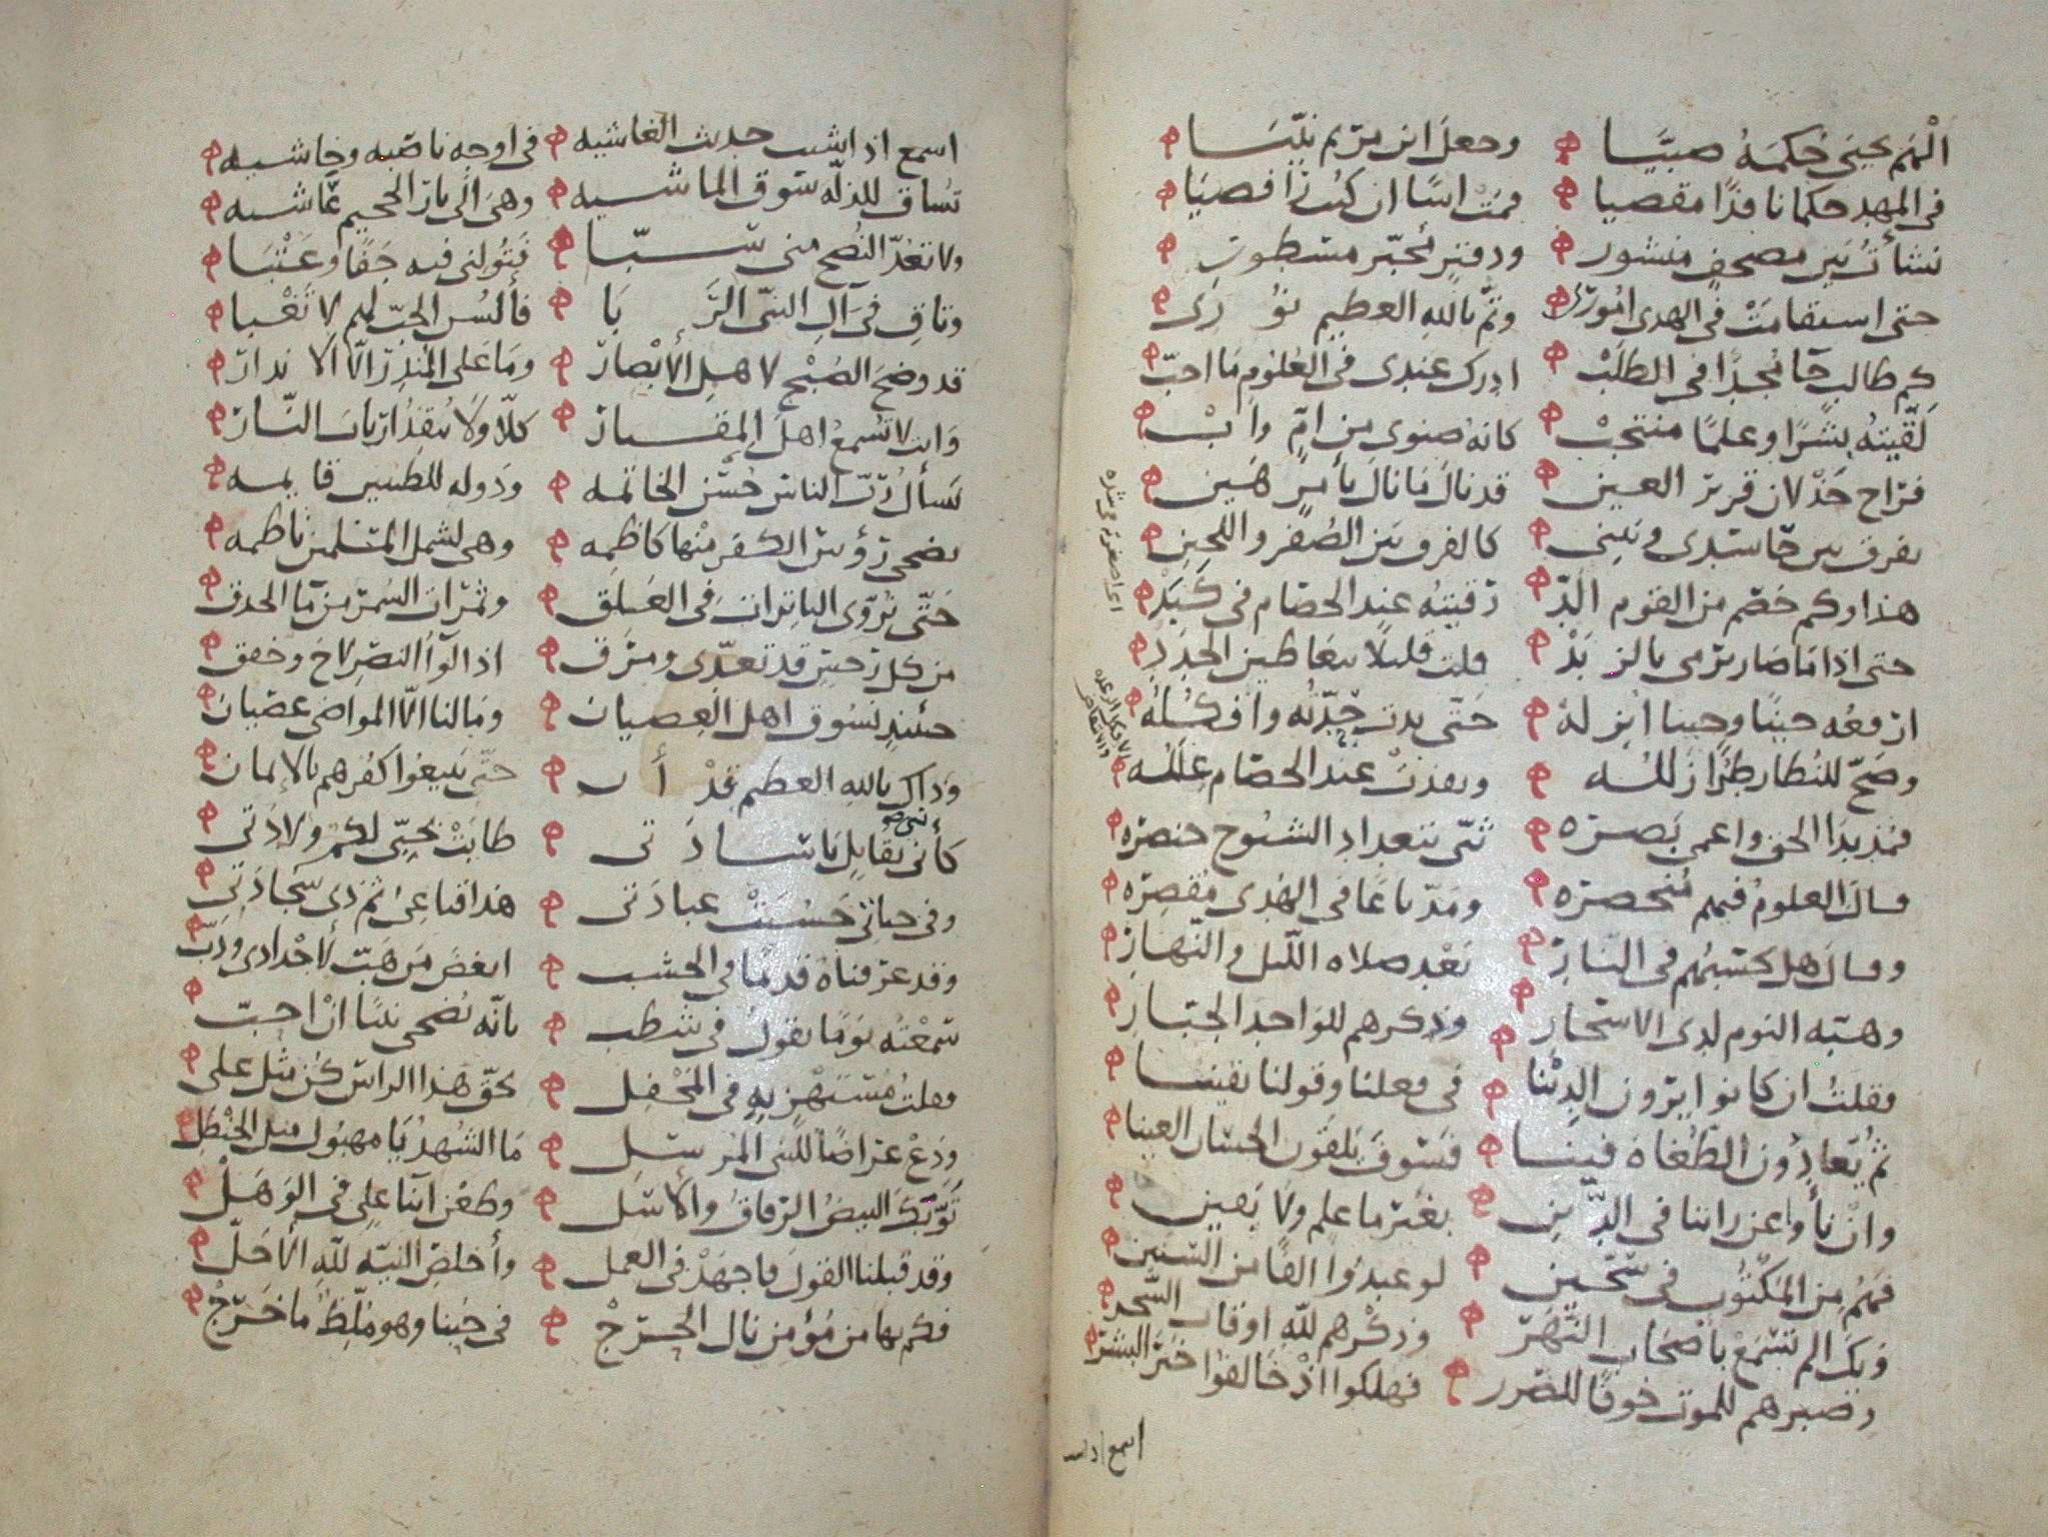 الهم يحيى حكمه صبيا وجعل ابن مريم نبيا
في المهد حكما نافذا مقضيا فمت اسا ان كنت
نشأت بين مصحف منشور ودفتر محبر مسطور
حتى استقامت في الهدى اموري وتم بالله العظيم نوري
كم طالب جا مجدا في الطلب ادرك عندي في العلوم ما احب
لقيته بشرا وعلما منتخب كانه صنوي من ام واب
فراح جذلان قرير العين قد نال ما نال بأمر هين
يفرق بين كالفرق بين الصفر واللجين
هذا وكم خصم من القوم الد رقيته عند الخصام في كبد
حتى اذا ما صار يرمي بالزبد قلت قليلا
ارفعه حينا وحينا انزله حتى بدت وافكله
وصح للنظار طرا زلله وبعدت عند الخصام علله
فمذ بدا الحق واعمى بصره ثنى بتعداد الشيوخ خنصره
وقال العلوم فيهم منحصره ومد باعا في الهدى مقصره
وقال هل كشيخهم في النار بعد صلاه الليل والنهار
وهبه النوم لدى الاسحار وذكرهم للواحد الجبار
فقلت ان كانوا يرون الدينا في فعلنا وقولنا يقينا
ثم يعادون الطغاة فينا فسوف يلقون الحسان العينا
وان نأوا عن راينا في الدين بغير ما علم ولا يقين
فهم من المكتوب في سجين لو عبدوا الفا من السنين
ويك الم تسمع باصحاب النهر وذكرهم لله اوقات السحر
وصبرهم للموت خوفا للضرر فهلكوا اذ خالفوا خير البشر
اسمع اذ
اسمع اذا شيت حديث الغاشيه في اوجه ناصبه وخاشيه
تساق للذله سوق الماشيه وهي الى نار الجحيم عاشيه
ولا تعد النصح مني سبا فتولني فيه جفا وعتبا
وثاق في آل النبي الربا فألسن الحب لهم لا تغبا
قد وضح الصبح لاهل الابصار وما على المنذر الا الانذار
وانت لا تسمع اهل المقبار كلا ولا ينقذ ارباب النار
نسأل رب الناس حسن الخاتمه ودوله للطيبين قايمه
يضحي رؤس الكفر منها كاظمه وهي لشمل المسلمين ناظمه
حتى تروى الباترات في العلق وثمرات السمر من ما الحدق
من كل رجس قد تعدى ومرق اذا لوا النصر لاح وخفق
حينئذ نسوق اهل العصيان وما لنا الا المواضي عصيان
وذاك بالله العظيم قد أن حتى يبيعوا كفرهم بالايمان
كأنني بقابل يا سادتي طابت بحبي لكم ولادتي
وفي حياتي حسنت عبادتي هذا قناعي ثم ذي سجادتي
وقد عرفناه قديما في الخشب ابغض من هب لاجدادي ودب
سمعته يوما يقول في شطب بانه يضحي نبيا ان احب
فقلت مستهز به في المحفل بحق هذا الراس كن مثل علي
ودع عراضا للنبي المرسل ما الشهد يا مهبول مثل الحنظل
توبك البيض الرقاق والاسل وطعن ابنا علي في الوهل
وقد قبلنا القول فاجهد في العمل وأخلص النيه لله الاجل
فكم بها من مؤمن نال الحرج في حبنا وهو ملظ ما خرج